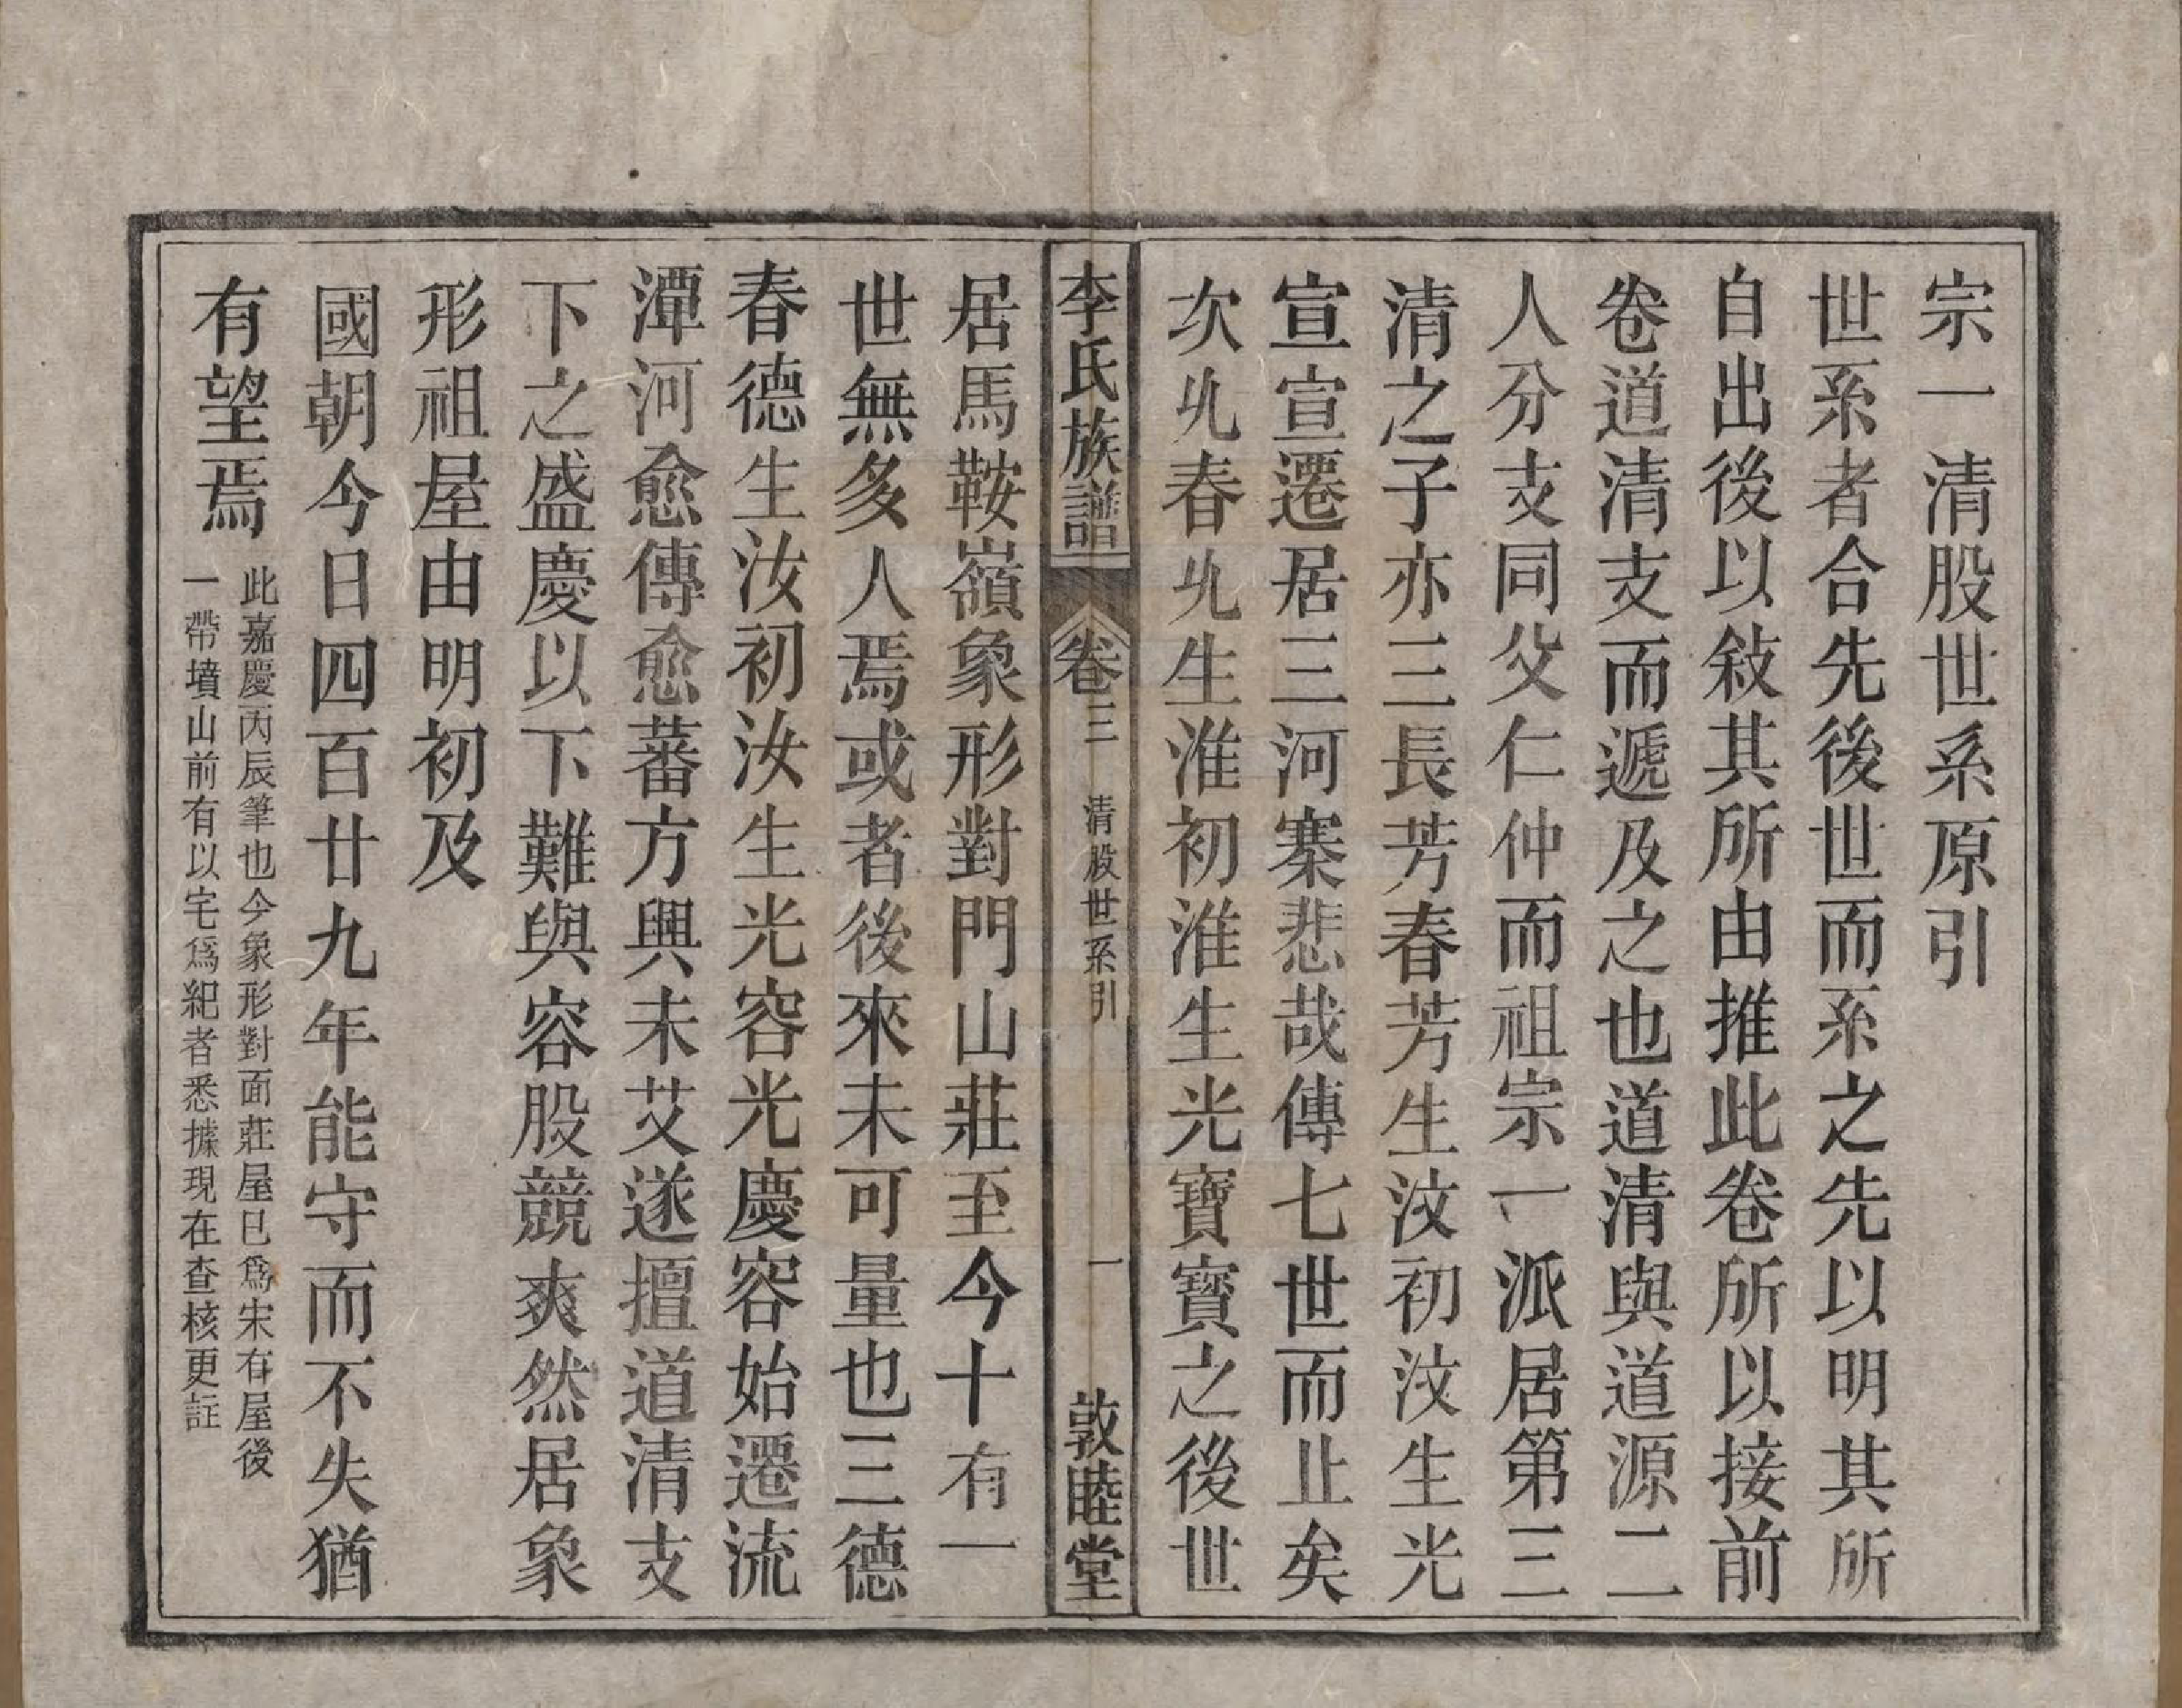 宗一清股世系原引
世系者合先後世而系之先以明其所
自出後以敍其所由推此卷所以接前
卷道清支而遞及之也道清與道源二
人分支同父仁仲而祖宗一派居第三
清之子亦三長芳春芳生汶初汶生光
宣宣遷居三河寨悲哉傳七世而止矣
次𠃔春𠃔生淮初淮生光寶寶之後世
李氏族譜
卷三
清股世系引
一
敦睦堂
居馬鞍嶺象形對門山莊至今十有一
世無多人焉或者後來未可量也三德
春德生汝初汝生光容光慶容始遷流
潭河愈傳愈蕃方興未艾遂擅道清支
下之盛慶以下難與容股競爽然居象
形祖屋由明初及
國朝今日四百廿九年能守而不失猶
有望焉
此嘉慶丙辰筆也今象形對面莊屋已爲宋存屋後
一帶墳山前有以宅爲紀者悉據現在查核更註